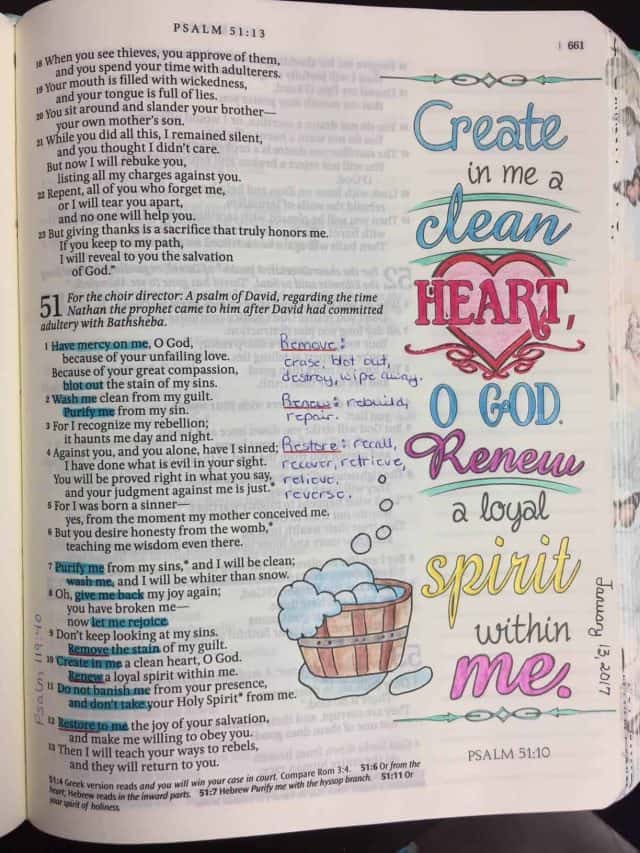 PSALM 51:13
661
18 When you see thieves, you approve of them,
and you spend your time with adulterers.
19 Your mouth is filled with wickedness,
and your tongue is full of lies.
20 You sit around and slander your brother—
your own mother's son.
21 While you did all this, I remained silent,
and you thought I didn't care.
But now I will rebuke you,
listing all my charges against you.
22 Repent, all of you who forget me,
or I will tear you apart,
and no one will help you.
23 But giving thanks is a sacrifice that truly honors me.
If you keep to my path,
I will reveal to you the salvation
of God."
51 For the choir director: A psalm of David, regarding the time
Nathan the prophet came to him after David had committed
adultery with Bathsheba.
1 Have mercy on me, O God,
because of your unfailing love.
Because of your great compassion,
blot out the stain of my sins.
2 Wash me clean from my guilt.
Purify me from my sin.
3 For I recognize my rebellion;
it haunts me day and night.
4 Against you, and you alone, have I sinned;
I have done what is evil in your sight.
You will be proved right in what you say,
and your judgment against me is just.*
5 For I was born a sinner—
yes, from the moment my mother conceived me.
6 But you desire honesty from the womb,*
teaching me wisdom even there.
7 Purify me from my sins,* and I will be clean;
wash me, and I will be whiter than snow.
8 Oh, give me back my joy again;
you have broken me—
now let me rejoice.
9 Don't keep looking at my sins.
Remove the stain of my guilt.
10 Create in me a clean heart, O God.
Renew a loyal spirit within me.
11 Do not banish me from your presence,
and don't take your Holy Spirit* from me.
12 Restore to me the joy of your salvation,
and make me willing to obey you.
13 Then I will teach your ways to rebels,
and they will return to you.
51:4 Greek version reads and you will win your case in court. Compare Rom 3:4. 51:6 Or from the
heart; Hebrew reads in the inward parts. 51:7 Hebrew Purify me with the hyssop branch. 51:11 Or
your spirit of holiness.
Remove:
erase, blot out,
destroy, wipe away.
Renew: rebuild,
repair.
Restore: recall,
recover, retrieve,
relieve,
reverse.
Psalm 119:40
Create
in me a
clean
HEART,
O GOD.
Renew
a loyal
spirit
within
me.
PSALM 51:10
January 13, 2017